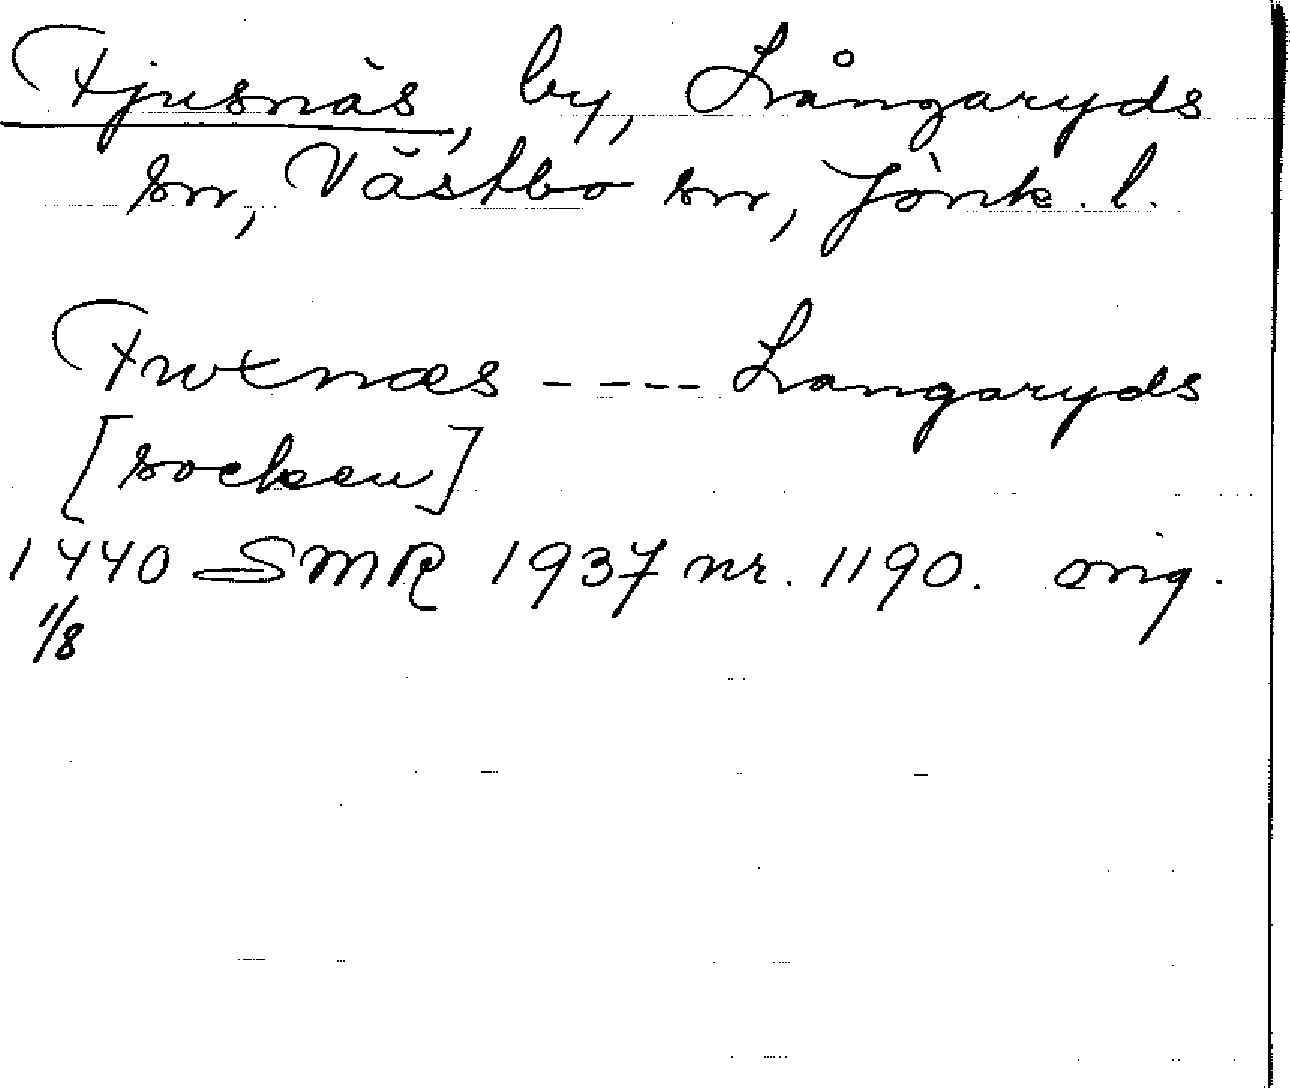 Fjusnäs, by, Långaryds
sn, Västbo sn, Jönk. l.
Fwtnæs - - - - Langaryds
[socken]
1440 SMR 1937 nr. 1190. orig.
1/8